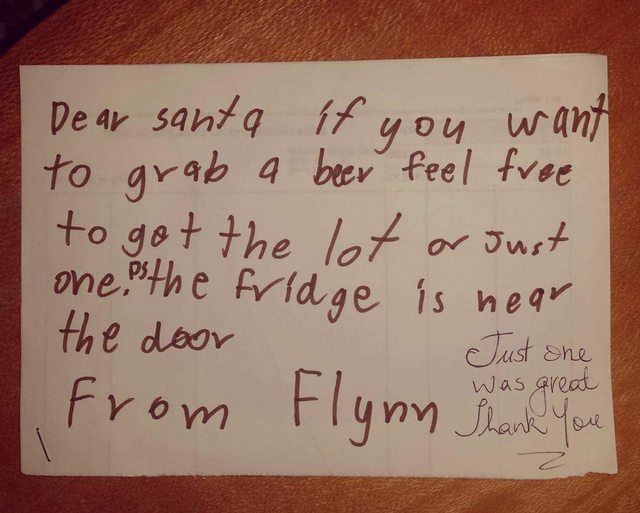 Dear santa if you want
to grab a beer feel free
to get the lot or just
one. ps the fridge is near
the door
From Flynn
Just one
was great
Thank You